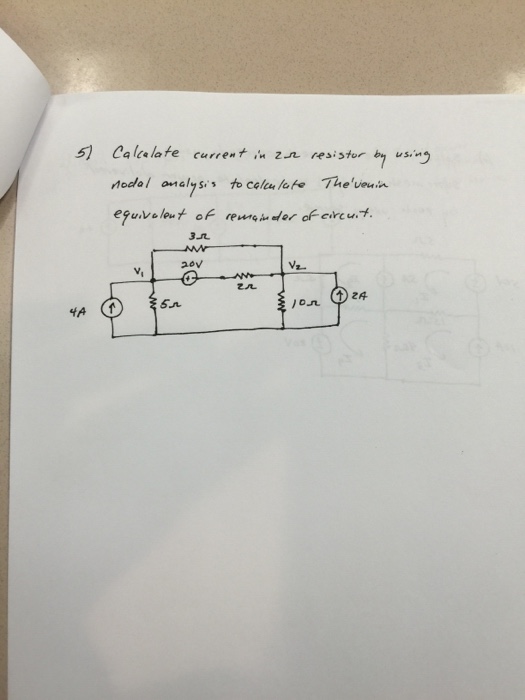 5) Calculate current in 2Ω resistor by using
nodal analysis to calculate The'venin
equivalent of remainder of circuit.
3Ω
V₁ 20V V₂
+ -
2Ω
4A 5Ω 10Ω 2A